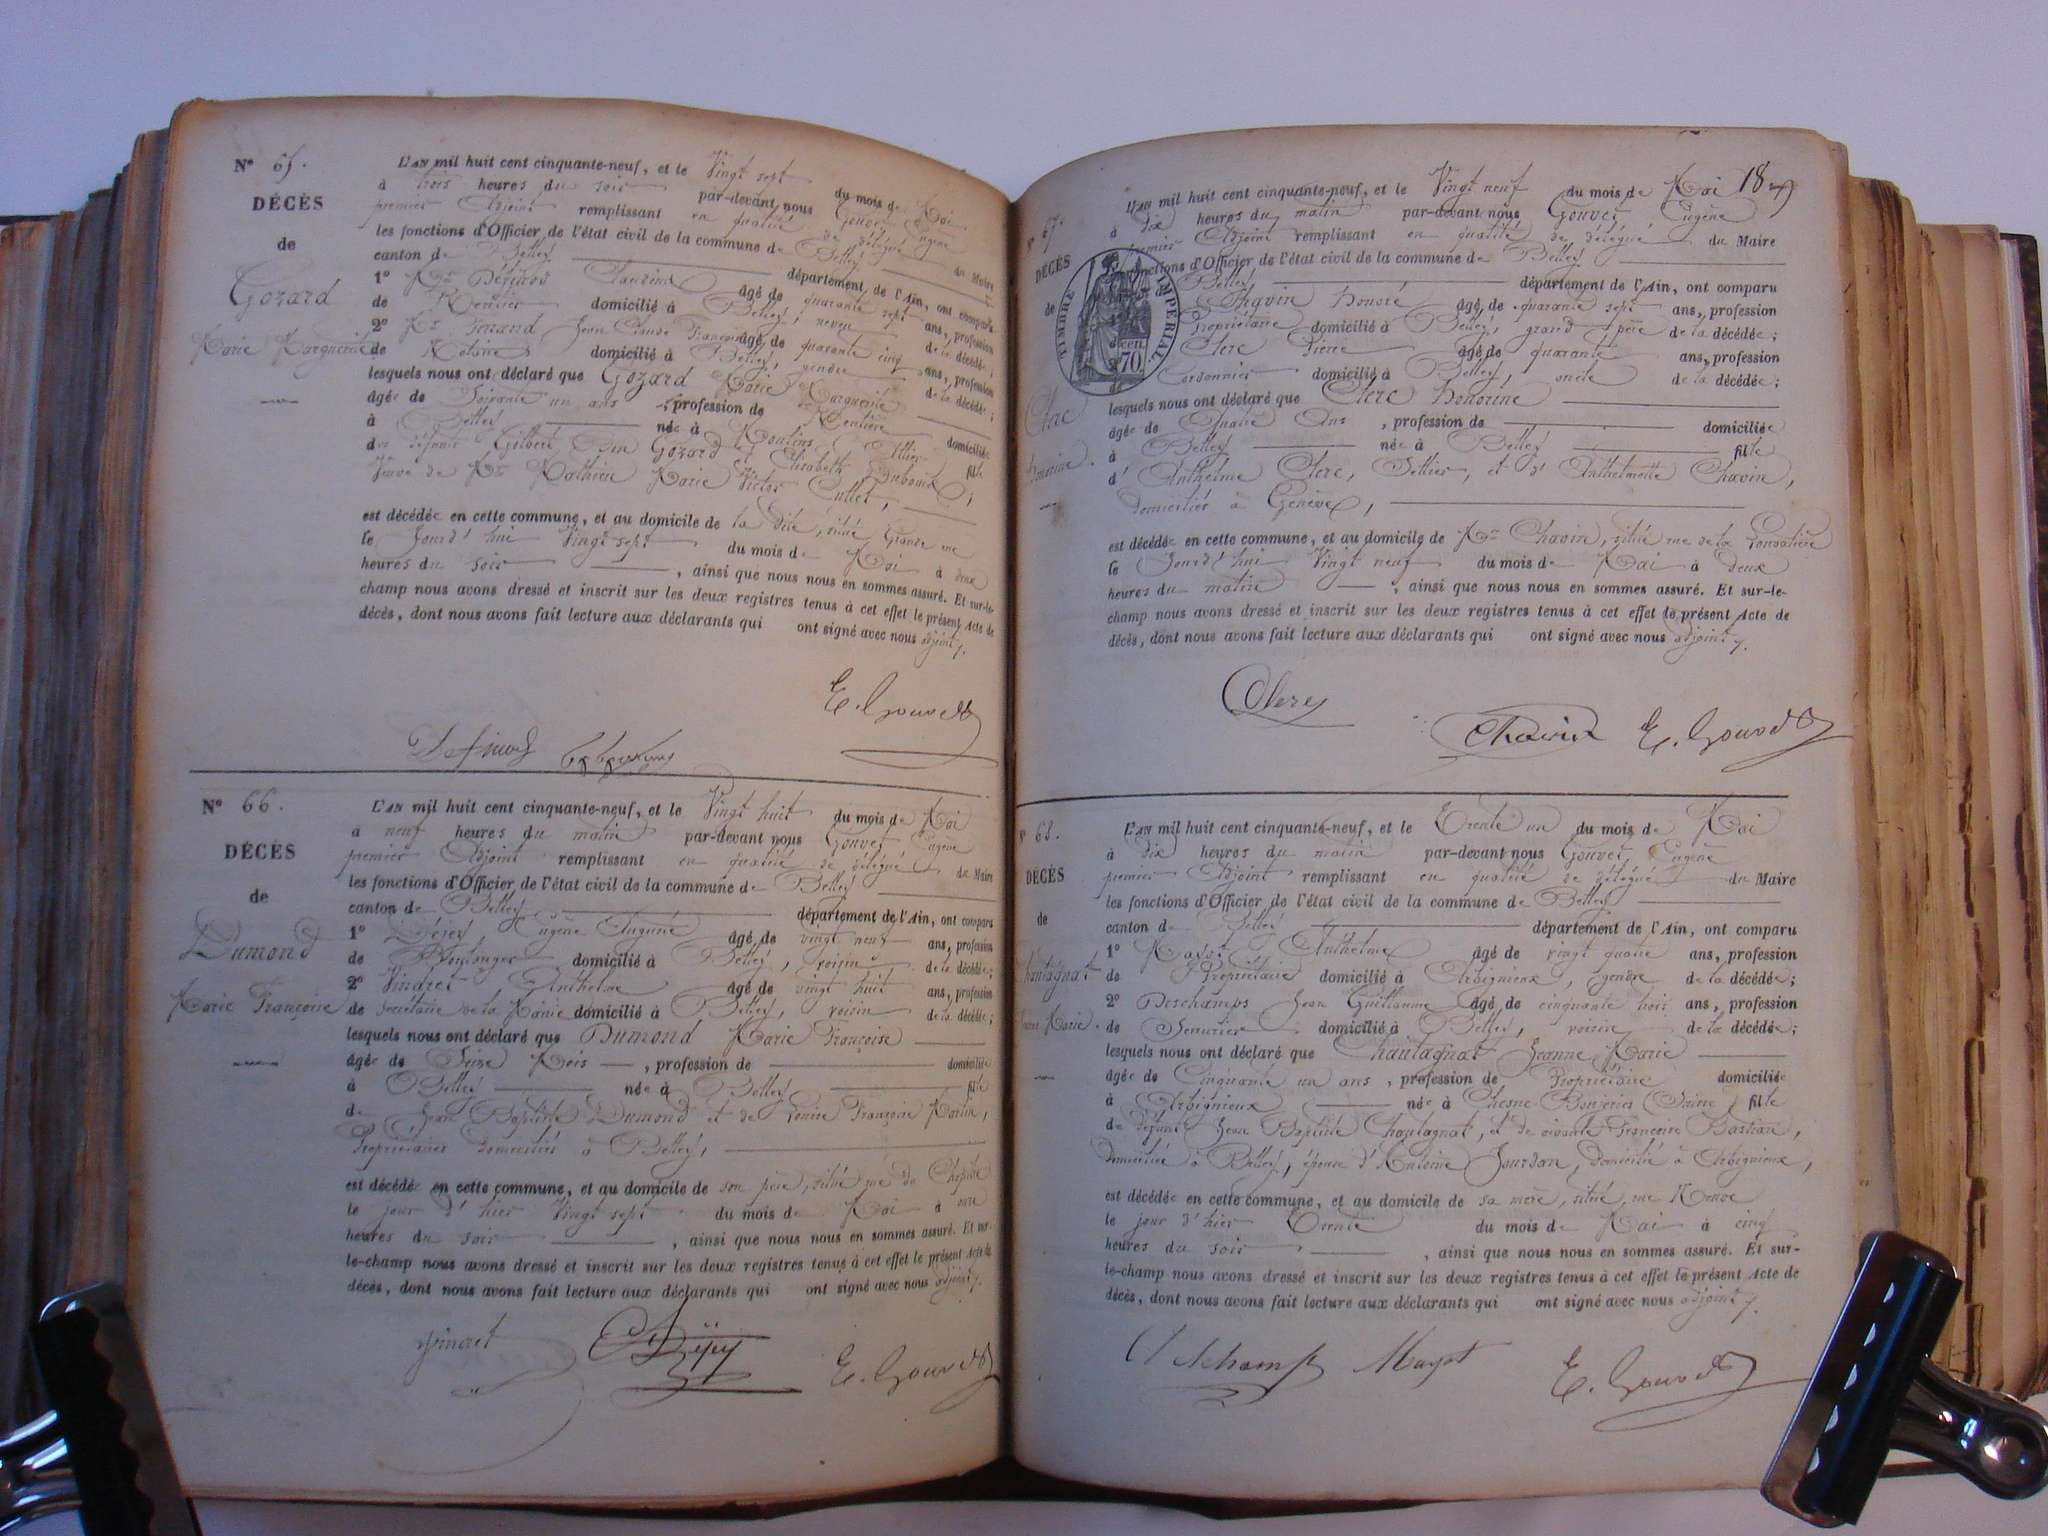 N° 65.
DÉCÈS
de
Gozard
Marie Marguerite
L'AN mil huit cent cinquante-neuf, et le Vingt sept du mois de Mai
à trois heures du soir par-devant nous Gouvet Eugène
premier Adjoint remplissant en qualité de délégué du Maire
les fonctions d'Officier de l'état civil de la commune de Belley
canton de Belley département de l'Ain, ont comparu
1° Claudius âgé de quarante sept ans, profession
de Rentier domicilié à Belley, neveu de la décédée;
2° Mr Jean Claude François âgé de quarante cinq ans, profession
de Notaire domicilié à Belley, gendre de la décédée;
lesquels nous ont déclaré que Gozard Marie Marguerite
âgée de Soixante un ans, profession de Rentière domiciliée
à Belley née à Moulins, Allier fille
des défunts Gilbert Gozard et Elisabeth Dubouis,
Veuve de Mr Mathieu Marie Victor Cullet,
est décédée en cette commune, et au domicile de la dite, situé Grande rue
le Jourd'hui Vingt sept du mois de Mai à deux
heures du soir, ainsi que nous nous en sommes assuré. Et sur-le-
champ nous avons dressé et inscrit sur les deux registres tenus à cet effet le présent Acte de
décès, dont nous avons fait lecture aux déclarants qui ont signé avec nous adjoint.
E. Gouvet
N° 66.
DÉCÈS
de
Dumond
Marie Françoise
L'AN mil huit cent cinquante-neuf, et le Vingt huit du mois de Mai
à neuf heures du matin par-devant nous Gouvet Eugène
premier Adjoint remplissant en qualité de délégué du Maire
les fonctions d'Officier de l'état civil de la commune de Belley
canton de Belley département de l'Ain, ont comparu
1° Eugène âgé de vingt neuf ans, profession
de Boulanger domicilié à Belley, voisin de la décédée;
2° Vindret Anthelme âgé de vingt huit ans, profession
de Secrétaire de la Mairie domicilié à Belley, voisin de la décédée;
lesquels nous ont déclaré que Dumond Marie Françoise
âgée de Seize Mois, profession de domiciliée
à Belley née à Belley fille
de Jean Baptiste Dumond et de Louise Françoise Martin,
Propriétaires domiciliés à Belley,
est décédée en cette commune, et au domicile de son père, situé rue de
le jour d'hier Vingt sept du mois de Mai à onze
heures du soir, ainsi que nous nous en sommes assuré. Et sur-
le-champ nous avons dressé et inscrit sur les deux registres tenus à cet effet le présent Acte de
décès, dont nous avons fait lecture aux déclarants qui ont signé avec nous adjoint.
Vindret
E. Gouvet
18
67.
DÉCÈS
de
Clerc
Honorine.
TIMBRE IMPÉRIAL.
cen.
70
L'AN mil huit cent cinquante-neuf, et le Vingt neuf du mois de Mai
à dix heures du matin par-devant nous Gouvet Eugène
premier Adjoint remplissant en qualité de délégué du Maire
fonctions d'Officier de l'état civil de la commune de Belley
Belley département de l'Ain, ont comparu
Chavin Honoré âgé de quarante sept ans, profession
Propriétaire domicilié à Belley, grand père de la décédée;
Clerc Pierre âgé de quarante ans, profession
Cordonnier domicilié à Belley, oncle de la décédée;
lesquels nous ont déclaré que Clerc Honorine
âgée de Quatre Ans, profession de domiciliée
à Belley née à Belley fille
d'Anthelme Clerc, Sellier, et d'Anthelmette Chavin,
domiciliés à Genève,
est décédée en cette commune, et au domicile de Mr Chavin, situé rue de la
le Jourd'hui Vingt neuf du mois de Mai à deux
heures du matin, ainsi que nous nous en sommes assuré. Et sur-le-
champ nous avons dressé et inscrit sur les deux registres tenus à cet effet le présent Acte de
décès, dont nous avons fait lecture aux déclarants qui ont signé avec nous adjoint.
Clerc
Chavin
E. Gouvet
68.
DÉCÈS
de
L'AN mil huit cent cinquante-neuf, et le Trente un du mois de Mai
à dix heures du matin par-devant nous Gouvet Eugène
premier Adjoint remplissant en qualité de délégué du Maire
les fonctions d'Officier de l'état civil de la commune de Belley
canton de Belley département de l'Ain, ont comparu
1° Anthelme âgé de vingt quatre ans, profession
de Propriétaire domicilié à Arbignieux, gendre de la décédée;
2° Deschamps Jean Guillaume âgé de cinquante trois ans, profession
de Serrurier domicilié à Belley, voisin de la décédée;
lesquels nous ont déclaré que Chautagnat Jeanne Marie
âgée de Cinquante un ans, profession de Propriétaire domiciliée
à Arbignieux née à fille
de défunt Jean Baptiste Chautagnat, et de vivante Françoise Bastian,
domiciliée à Belley, épouse d'Antoine Jourdan, domicilié à Arbignieux,
est décédée en cette commune, et au domicile de sa mère, situé, rue Neuve
le jour d'hier Trente du mois de Mai à cinq
heures du soir, ainsi que nous nous en sommes assuré. Et sur-
le-champ nous avons dressé et inscrit sur les deux registres tenus à cet effet le présent Acte de
décès, dont nous avons fait lecture aux déclarants qui ont signé avec nous adjoint.
E. Gouvet